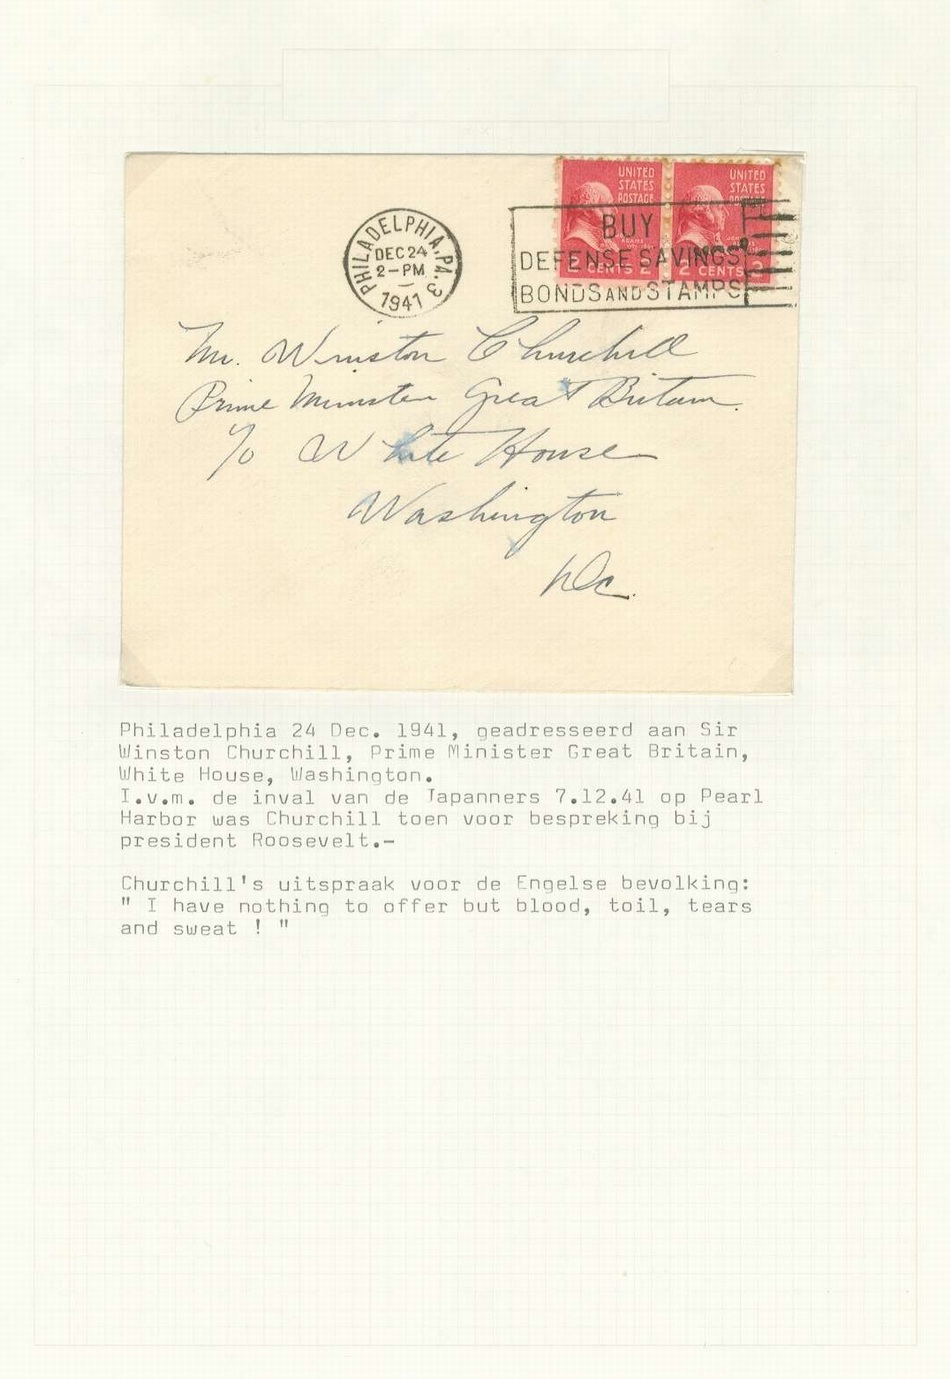 UNITED STATES POSTAGE
UNITED STATES POSTAGE
2 CENTS 2
2 CENTS 2
PHILADELPHIA, PA. 3
DEC 24
2-PM
1941
BUY
DEFENSE SAVINGS
BONDS AND STAMPS
Mr. Winston Churchill
Prime Minister Great Britain.
c/o White House
Washington
D.C.
Philadelphia 24 Dec. 1941, geadresseerd aan Sir
Winston Churchill, Prime Minister Great Britain,
White House, Washington.
I.v.m. de inval van de Japanners 7.12.41 op Pearl
Harbor was Churchill toen voor bespreking bij
president Roosevelt.-
Churchill's uitspraak voor de Engelse bevolking:
" I have nothing to offer but blood, toil, tears
and sweat ! "